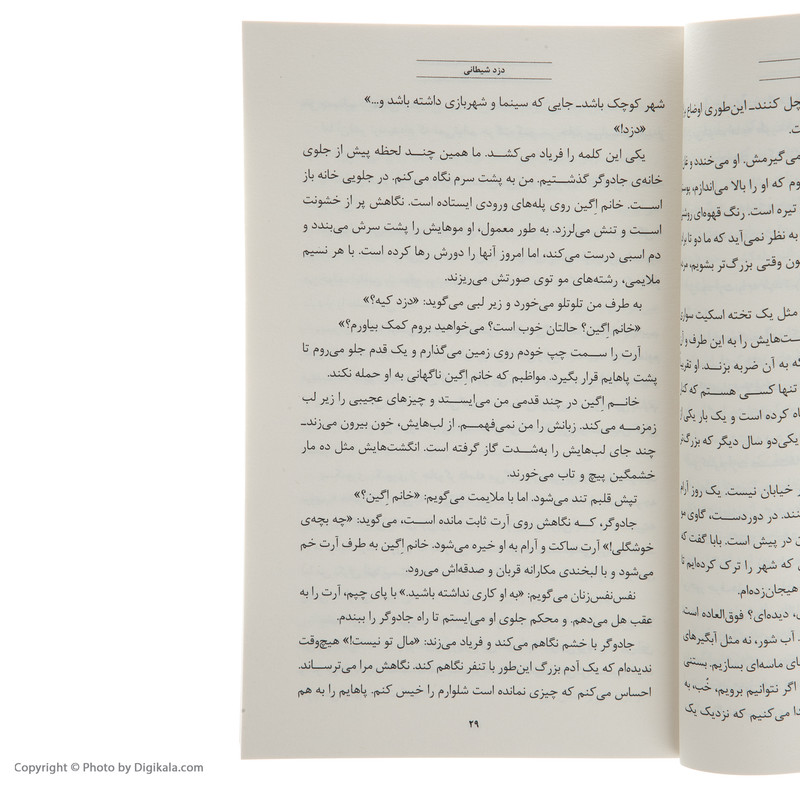 دزد شیطانی
شهر کوچک باشدـ جایی که سینما و شهربازی داشته باشد و...»
«دزد!»
یکی این کلمه را فریاد می‌کشد. ما همین چند لحظه پیش از جلوی
خانه‌ی جادوگر گذشتیم. من به پشت سرم نگاه می‌کنم. در جلویی خانه باز
است. خانم اِگین روی پله‌های ورودی ایستاده است. نگاهش پر از خشونت
است و تنش می‌لرزد. به طور معمول، او موهایش را پشت سرش می‌بندد و
دم اسبی درست می‌کند، اما امروز آنها را دورش رها کرده است. با هر نسیم
ملایمی، رشته‌های مو توی صورتش می‌ریزند.
به طرف من تلوتلو می‌خورد و زیر لبی می‌گوید: «دزد کیه؟»
«خانم اِگین؟ حالتان خوب است؟ می‌خواهید بروم کمک بیاورم؟»
آرت را سمت چپ خودم روی زمین می‌گذارم و یک قدم جلو می‌روم تا
پشت پاهایم قرار بگیرد. مواظبم که خانم اِگین ناگهانی به او حمله نکند.
خانم اِگین در چند قدمی من می‌ایستد و چیزهای عجیبی را زیر لب
زمزمه می‌کند. زبانش را من نمی‌فهمم. از لب‌هایش، خون بیرون می‌زندـ
چند جای لب‌هایش را به‌شدت گاز گرفته است. انگشت‌هایش مثل ده مار
خشمگین پیچ و تاب می‌خورند.
تپش قلبم تند می‌شود. اما با ملایمت می‌گویم: «خانم اِگین؟»
جادوگر، که نگاهش روی آرت ثابت مانده است، می‌گوید: «چه بچه‌ی
خوشگلی!» آرت ساکت و آرام به او خیره می‌شود. خانم اِگین به طرف آرت خم
می‌شود و با لبخندی مکارانه قربان و صدقه‌اش می‌رود.
نفس‌نفس‌زنان می‌گویم: «به او کاری نداشته باشید.» با پای چپم، آرت را به
عقب هل می‌دهم. و محکم جلوی او می‌ایستم تا راه جادوگر را ببندم.
جادوگر با خشم نگاهم می‌کند و فریاد می‌زند: «مال تو نیست!» هیچ‌وقت
ندیده‌ام که یک آدم بزرگ این‌طور با تنفر نگاهم کند. نگاهش مرا می‌ترساند.
احساس می‌کنم که چیزی نمانده است شلوارم را خیس کنم. پاهایم را به هم
۲۹
کنند. این‌طوری اوضاع
می‌گیرمش. او می‌خندد و
که او را بالا می‌اندازم،
تیره است. رنگ قهوه‌ای
به نظر نمی‌آید که ما دو تا
وقتی بزرگ‌تر بشویم،
مثل یک تخته اسکیت
را به این طرف و
به آن ضربه بزند. او
تنها کسی هستم که
کرده است و یک بار یکی
یکی‌دو سال دیگر که
خیابان نیست. یک روز
در دوردست، گاوی
در پیش است. بابا گفت که
که شهر را ترک کرده‌ایم تا
هیجان‌زده‌ام.
دیده‌ای؟ فوق‌العاده است
آب شور، نه مثل آبگیرهای
ماسه‌ای بسازیم. بستنی
اگر نتوانیم برویم، خُب، به
می‌کنیم که نزدیک یک
Copyright © Photo by Digikala.com